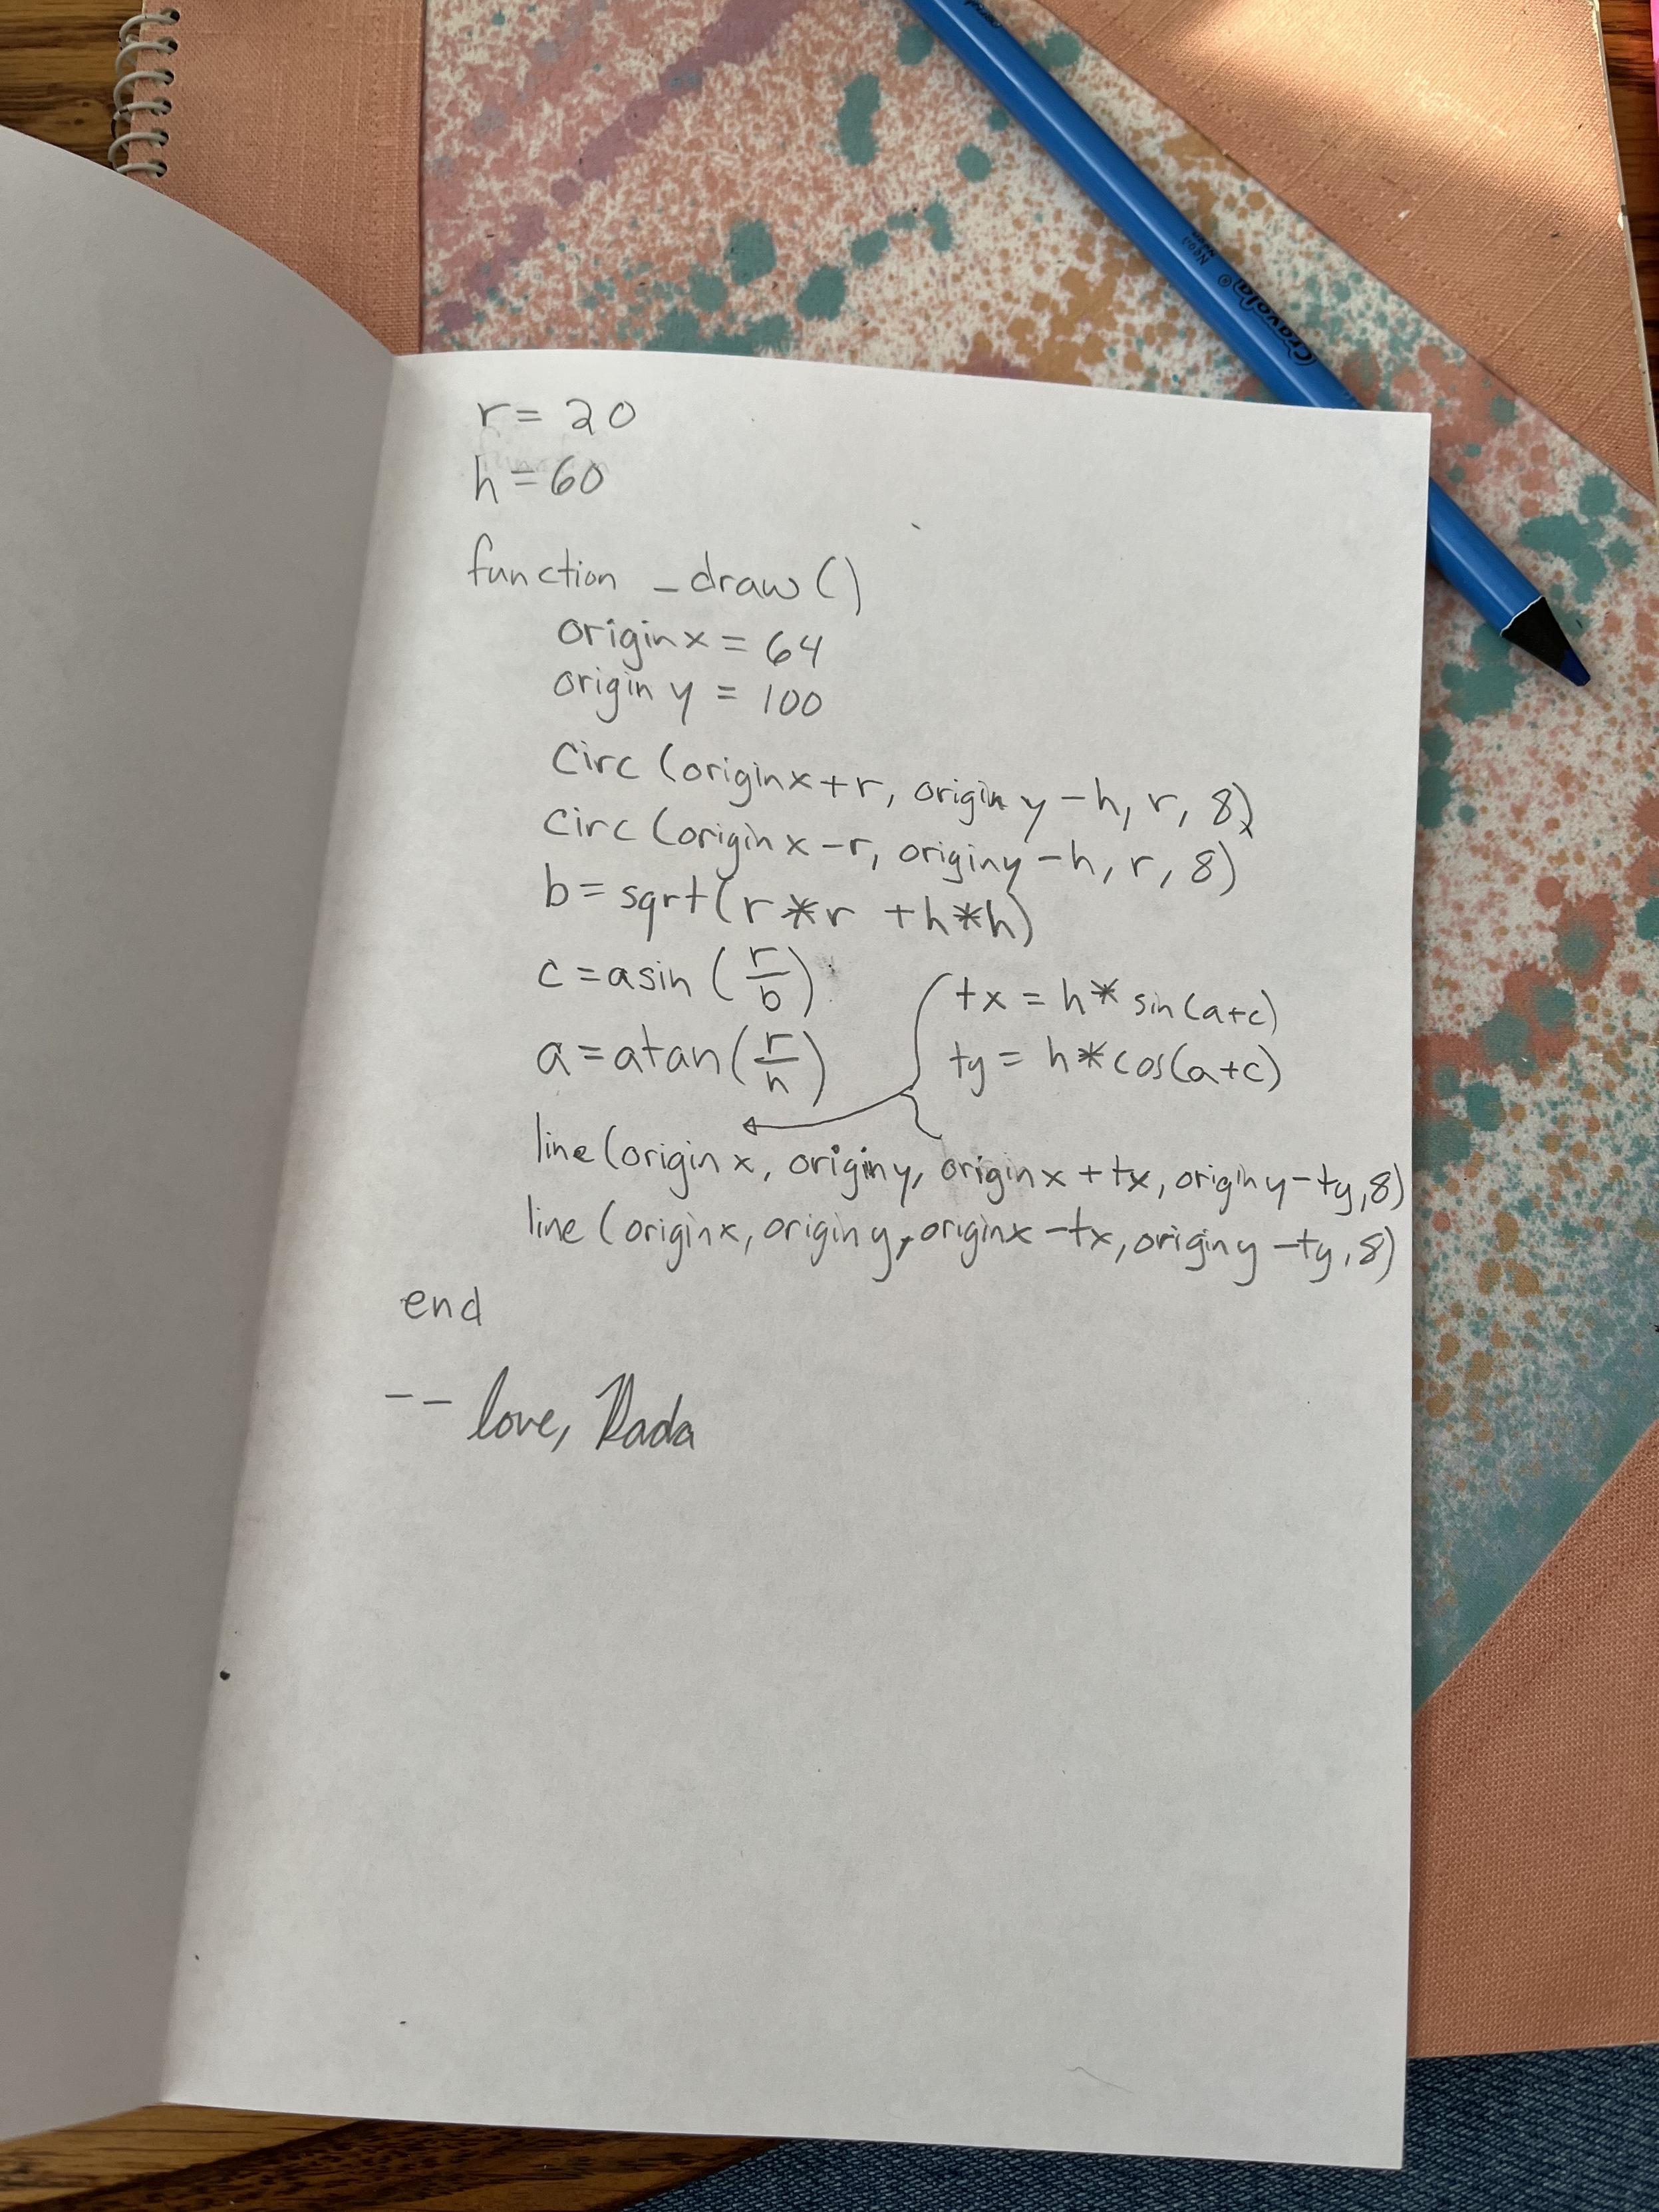 r = 20
h = 60
function _draw()
originx = 64
originy = 100
circ (originx+r, originy-h, r, 8)
circ (originx-r, originy-h, r, 8)
b = sqrt(r*r + h*h)
c = asin (r/b)
a = atan(r/h)
tx = h* sin(a+c)
ty = h*cos(a+c)
line (originx, originy, originx + tx, originy-ty, 8)
line (originx, originy, originx -tx, originy -ty, 8)
end
-- love, Dada
Crayola®
Neon